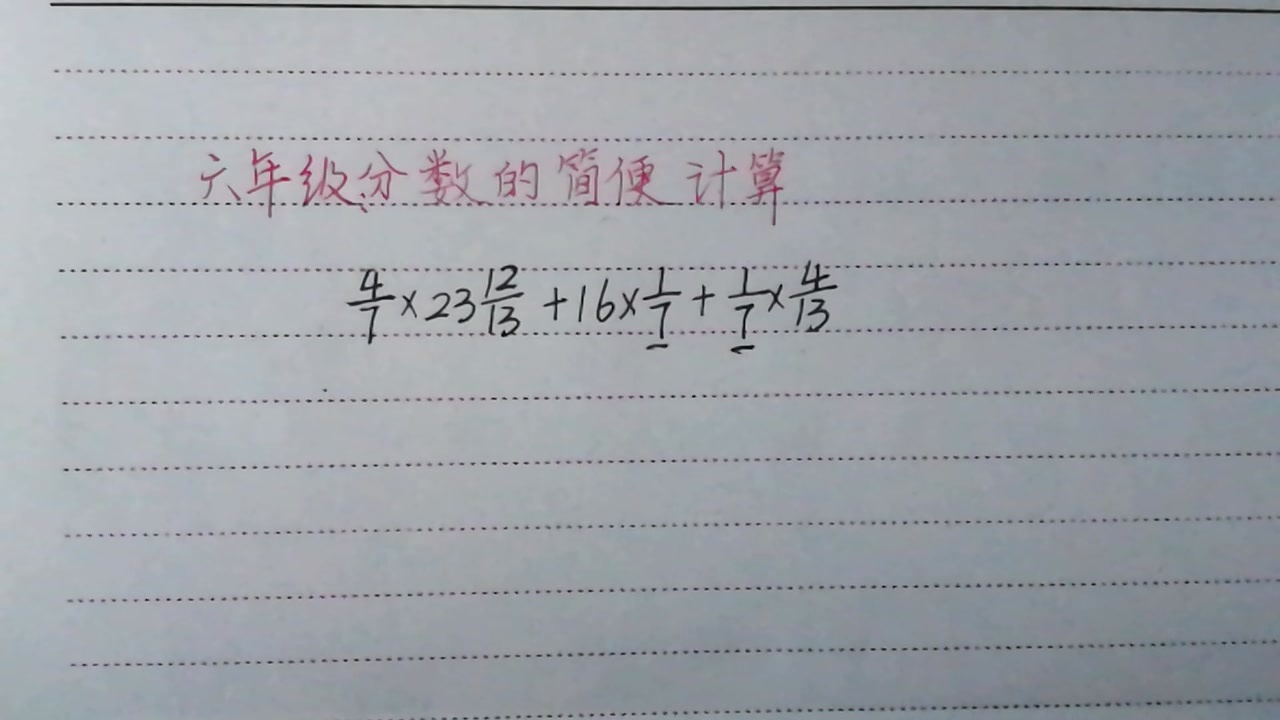 六年级分数的简便计算
4/7×23 12/13+16×1/7+1/7×4/13